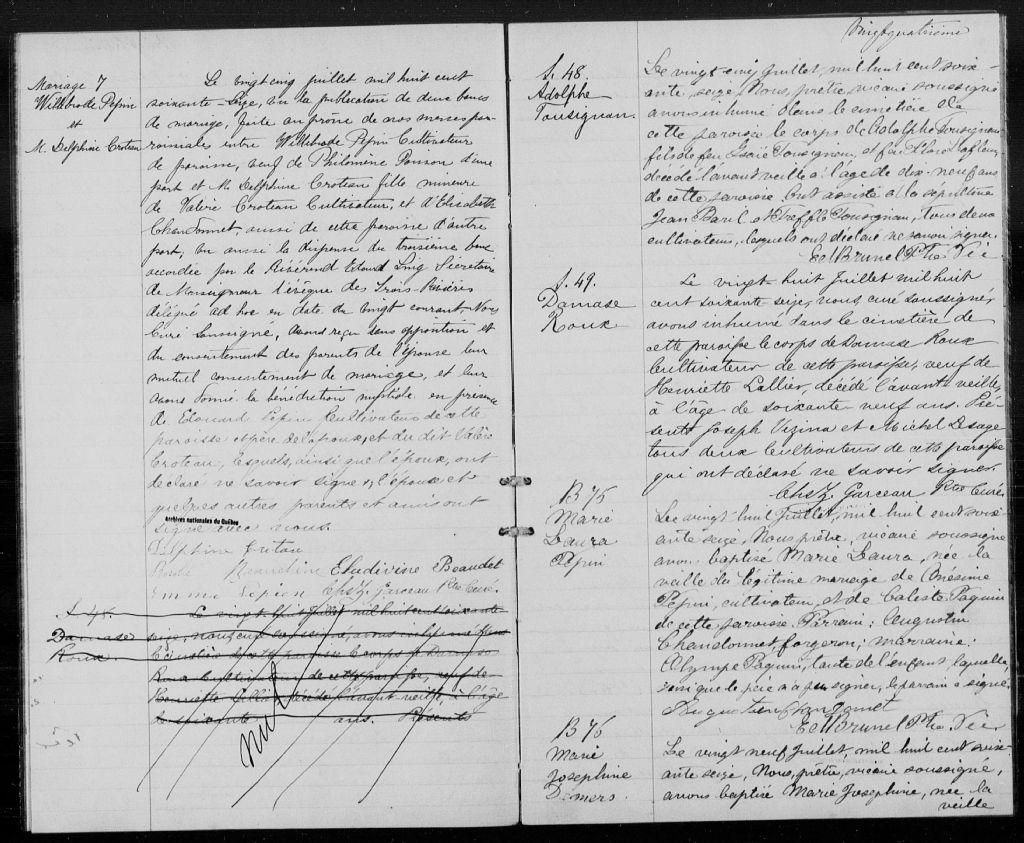 Mariage 7
Willibrode Pepin
et
M. Delphine Croteau
Le vingt cinq juillet mil huit cent
soixante-seize, vu la publication de deux bancs
de mariage, faite au prône de nos messes pa-
roissiales entre Willibrode Pepin Cultivateur
de paroisse, veuf de Philomène d'une
part et M. Delphine Croteau fille mineure
de Valère Croteau Cultivateur, et d'Elisabeth
Chandonnet, aussi de cette paroisse d'autre
part, vu aussi la dispense du troisième banc
accordée par le Révérend Edouard Ling Sécretaire
de Monseigneur l'évêque des Trois-Rivières
délégué ad hoc en date du vingt courant, Nous
Curé soussigné, avons reçu sans opposition et
du consentement des parents de l'épouse leur
mutuel consentement de mariage, et leur
avons donné la bénédiction nuptiale en présence
de Edouard Pepin Cultivateur de cette
paroisse et père de l'époux, et du dit Valère
Croteau, lesquels, ainsi que l'époux, ont
déclaré ne savoir signer; l'épouse et
quelques autres parents et amis ont
Archives nationales du Québec
signé avec nous.
Eludivine Beaudet
Emma Chs Z. Garceau Ptre Curé.
S. 48.
Damase
Roux
Le vingt huit Juillet mil huit cent soixante
seize, nous curé soussigné, avons inhumé dans
le cimetière de cette paroisse le corps de Damase
Roux Cultivateur de cette paroisse, veuf de
Henriette décédé l'avant veille, à l'âge
de soixante ans. Présents
nul
Vingtquatrième
S. 48.
Adolphe
Tousignan.
Le vingt cinq Juillet, mil huit cent soix-
ante, seize, Nous, prêtre, vicaire soussigné
avons inhumé dans le cimetière de
cette paroisse le corps de Adolphe Tousignan
fils de feu Isaïe Tousignan, et feu Flore
décédé l'avant veille à l'âge de dix-neuf ans
de cette paroisse. Ont assisté à la sépulture
Jean Baril et Trefflé Tousignan, tous deux
cultivateurs, lesquels ont déclaré ne savoir signer.
Ed Brunel Ptre Vic
S. 49.
Damase
Roux
Le vingt huit Juillet mil huit
cent soixante seize, nous curé soussigné,
avons inhumé dans le cimetière de
cette paroisse le corps de Damase Roux
Cultivateur de cette paroisse, veuf de
Henriette Lallier, décédé l'avant veille,
à l'âge de soixante neuf ans. Pré-
sents Joseph Vezina et Michel Lesage
tous deux Cultivateurs de cette paroisse
qui ont déclaré ne savoir signer.
Chs Z. Garceau Ptre Curé.
B 75
Marie
Laura
Pepin
Le vingt huit Juillet, mil huit cent soix-
ante seize, Nous prêtre, vicaire soussigné
avons baptisé Marie Laura, née la
veille du légitime mariage de Onésime
Pepin, cultivateur, et de Celeste Paquin
de cette paroisse. Parrain: Augustin
Chandonnet, forgeron; marraine:
Olympe Paquin, tante de l'enfant, laquelle,
ainsi que le père n'a pu signer, le parrain a signé.
Augustin Chandonnet
Ed Brunel Ptre Vic
B 76
Marie
Josephine
Demers.
Le vingt neuf Juillet, mil huit cent soix-
ante seize, Nous, prêtre, vicaire soussigné,
avons baptisé Marie Josephine, née la
veille